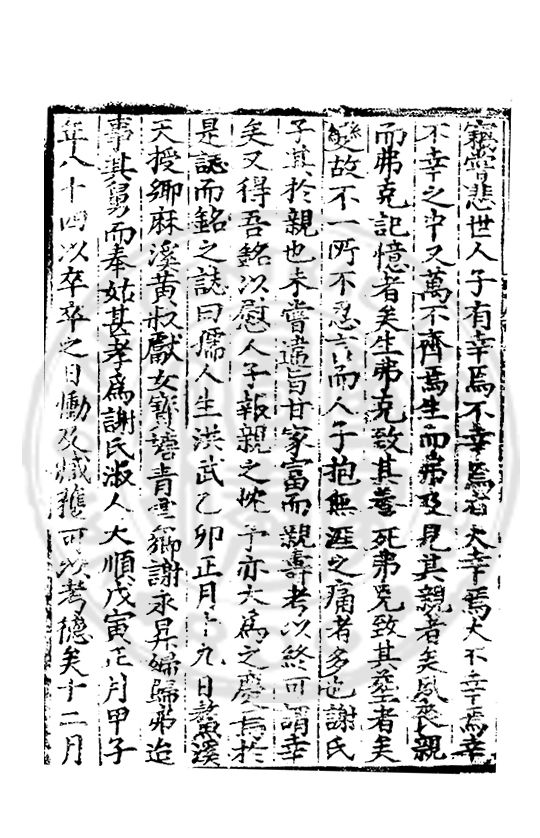 竊嘗悲世人子有幸焉不幸焉者大幸焉大不幸焉幸
不幸之中又萬不齊焉生而弗及見其親者矣夙喪親
而弗克記憶者矣生弗克致其養死弗克致其塟者矣
變故不一所不忍言而人子抱無涯之痛者多也謝氏
子其於親也未嘗違旨甘家富而親壽考以終可謂幸
矣又得吾銘以慰人子報親之忱予亦大為之慶焉於
是誌而銘之誌曰孺人生洪武乙卯正月十九日鰲溪
天授鄉麻溪黃叔獻女寳塘青雲鄉謝永昇婦歸弗逮
事其舅而奉姑甚孝為謝氏淑人大順戊寅正月甲子
年八十四以卒卒之日慟及臧獲可以考德矣十二月